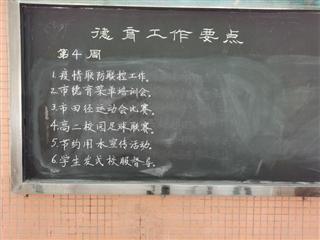 德育工作要点
第4周
1.疫情联防联控工作。
2.市德育菜单培训会。
3.市田径运动会比赛。
4.高二校园足球联赛。
5.节约用水宣传活动。
6.学生发式校服督导。